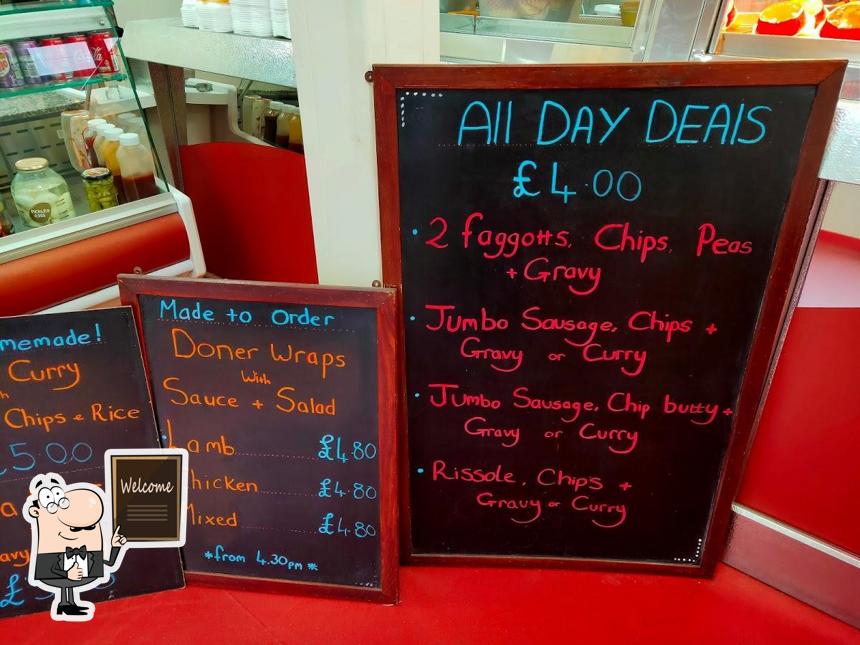 All DAY DEAlS
£4.00
2 faggotts, Chips, Peas
+ Gravy
Jumbo Sausage, Chips +
Gravy or Curry
Jumbo Sausage, Chip butty +
Gravy or Curry
Rissole, Chips +
Gravy or Curry
Made to Order
Doner Wraps
With
Sauce + Salad
Lamb £4.80
Chicken £4.80
Mixed £4.80
*from 4.30pm *
memade!
Curry
Chips & Rice
500
Welcome